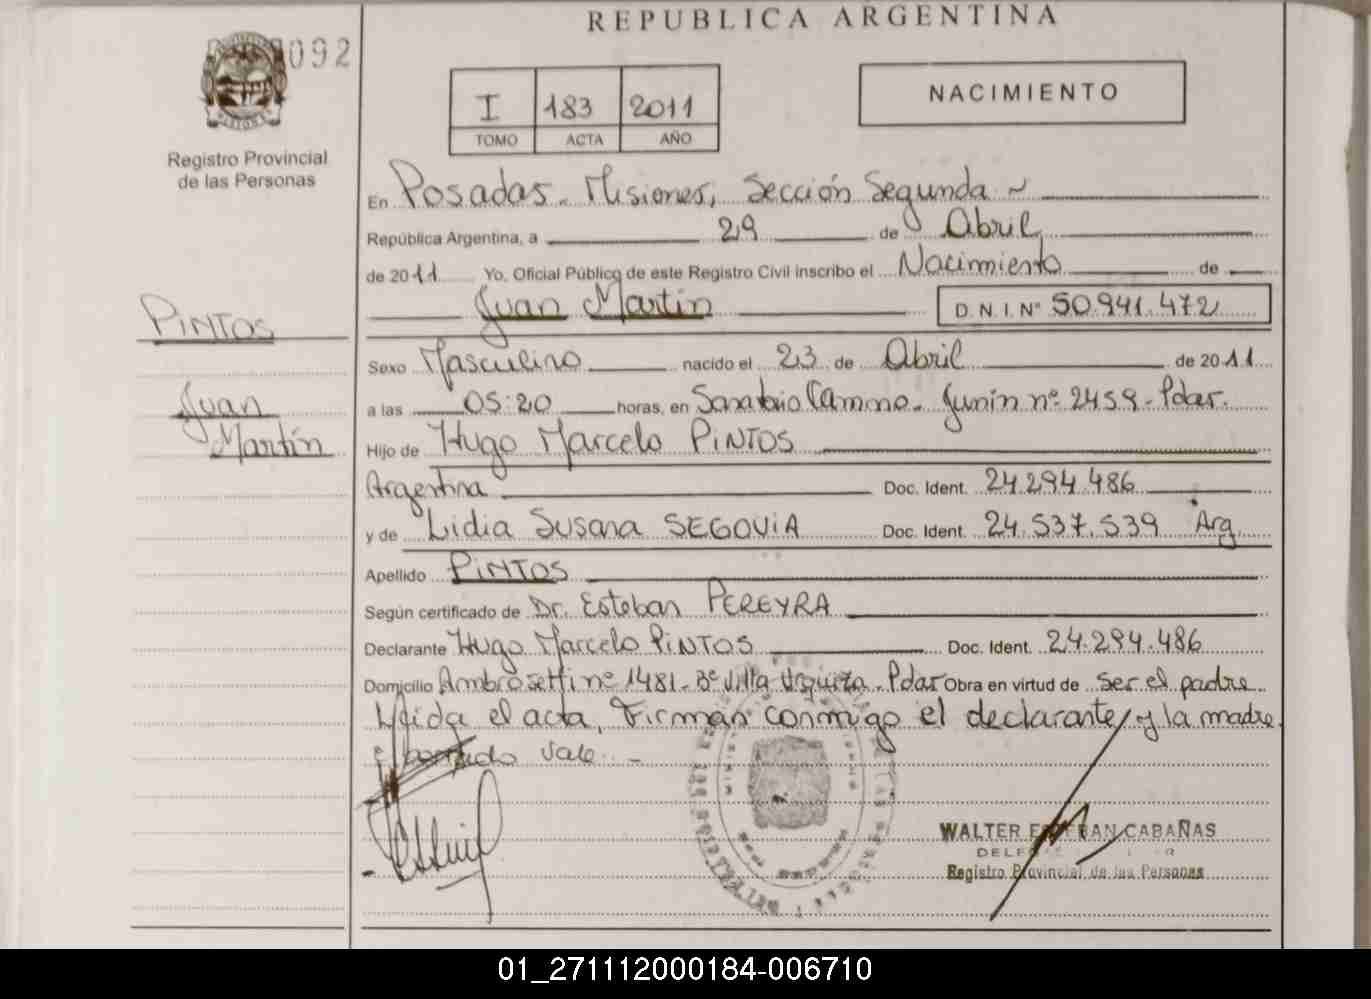 REPUBLICA ARGENTINA
092
I 183 2011
TOMO ACTA AÑO
NACIMIENTO
Registro Provincial
de las Personas
En Posadas - Misiones, Sección Segunda
República Argentina, a 29 de Abril
de 2011 Yo, Oficial Público de este Registro Civil inscribo el Nacimiento de
Juan Martín D.N.I.Nº 50.941.472
PINTOS
Juan
Martín
Sexo Masculino nacido el 23 de Abril de 2011
a las 05:20 horas, en Sanatorio Camino - Junín nº 2459 - Pdas.
Hijo de Hugo Marcelo PINTOS
Argentina Doc. Ident. 24.294.486
y de Lidia Susana SEGOVIA Doc. Ident. 24.537.539 Arg
Apellido PINTOS
Según certificado de Dr. Esteban PEREYRA
Declarante Hugo Marcelo PINTOS Doc. Ident. 24.294.486
Domicilio Ambrosetti nº 1481 - Bº Villa Urquiza - Pdas Obra en virtud de ser el padre
Leida el acta, Firman conmigo el declarante, y la madre
vale. -
WALTER CABAÑAS
Registro Provincial de las Personas
01_271112000184-006710